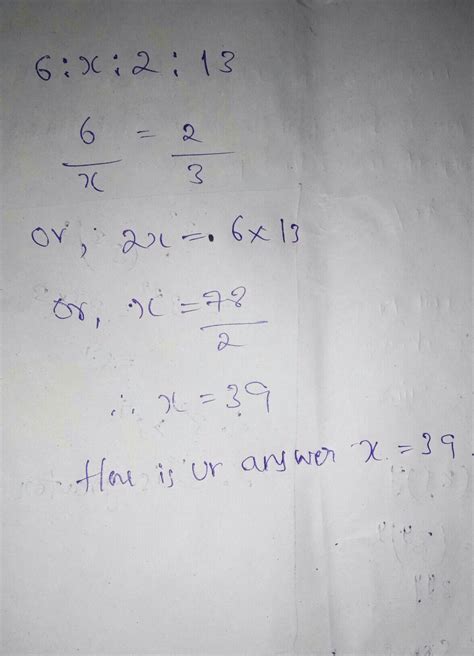 6:x:2:13
6/x = 2/3
or, 2x = 6x13
or, x = 78/2
∴ x = 39
Here is ur answer x = 39